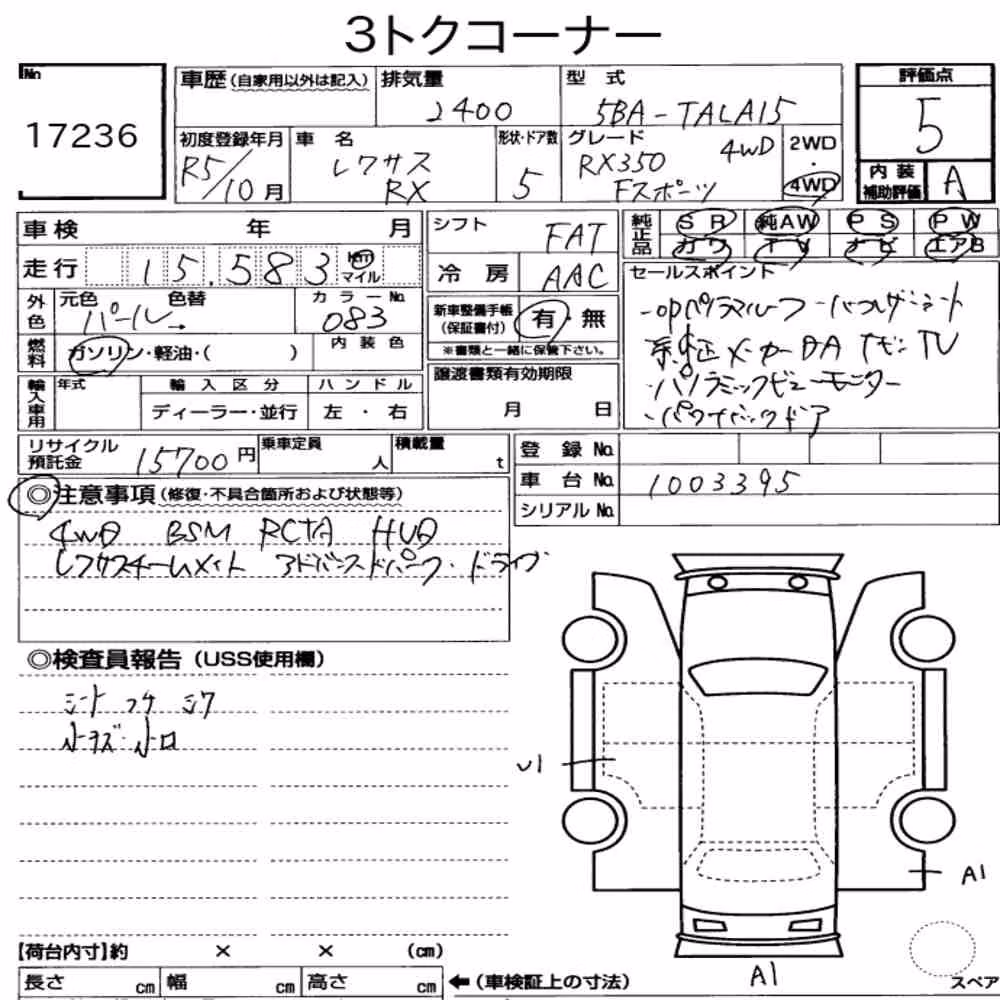 3トクコーナー
No
17236
車歴(自家用以外は記入)
排気量
2400
型 式
5BA-TALA15
評価点
5
初度登録年月
R5/10月
車 名
レクサス
RX
形状・ドア数
5
グレード
RX350 4WD
Fスポーツ
2WD
・
4WD
内 装
補助評価
A
車検 年 月
シフト
FAT
純正品
SR 純AW PS PW
カワ TV ナビ エアB
走行 15,583 km マイル
冷 房
AAC
セールスポイント
外色
元色 色替
パール→
カラーNo.
083
新車整備手帳
(保証書付)
有・無
※書類と一緒に保管下さい。
・OPパノラマルーフ
燃料
ガソリン・軽油・( )
内 装 色
純正メーカー DA ナビ TV
・パノラミックビューモニター
・パワーバックドア
譲渡書類有効期限
月 日
輸入車用
年式
輸 入 区 分
ハ ン ド ル
ディーラー・並行
左 ・ 右
リサイクル
預託金
15700円
乗車定員
人
積載量
t
登 録 No.
車 台 No.
1003395
シリアル No.
◎注意事項(修復・不具合箇所および状態等)
4WD BSM RCTA HUD
レクサスチームメイト アドバンスドパーク・ドライブ
◎検査員報告(USS使用欄)
シート コケ シワ
小キズ 小凹
U1
A1
A1
【荷台内寸】約 × × (cm)
長さ cm 幅 cm 高さ cm
←(車検証上の寸法)
スペア